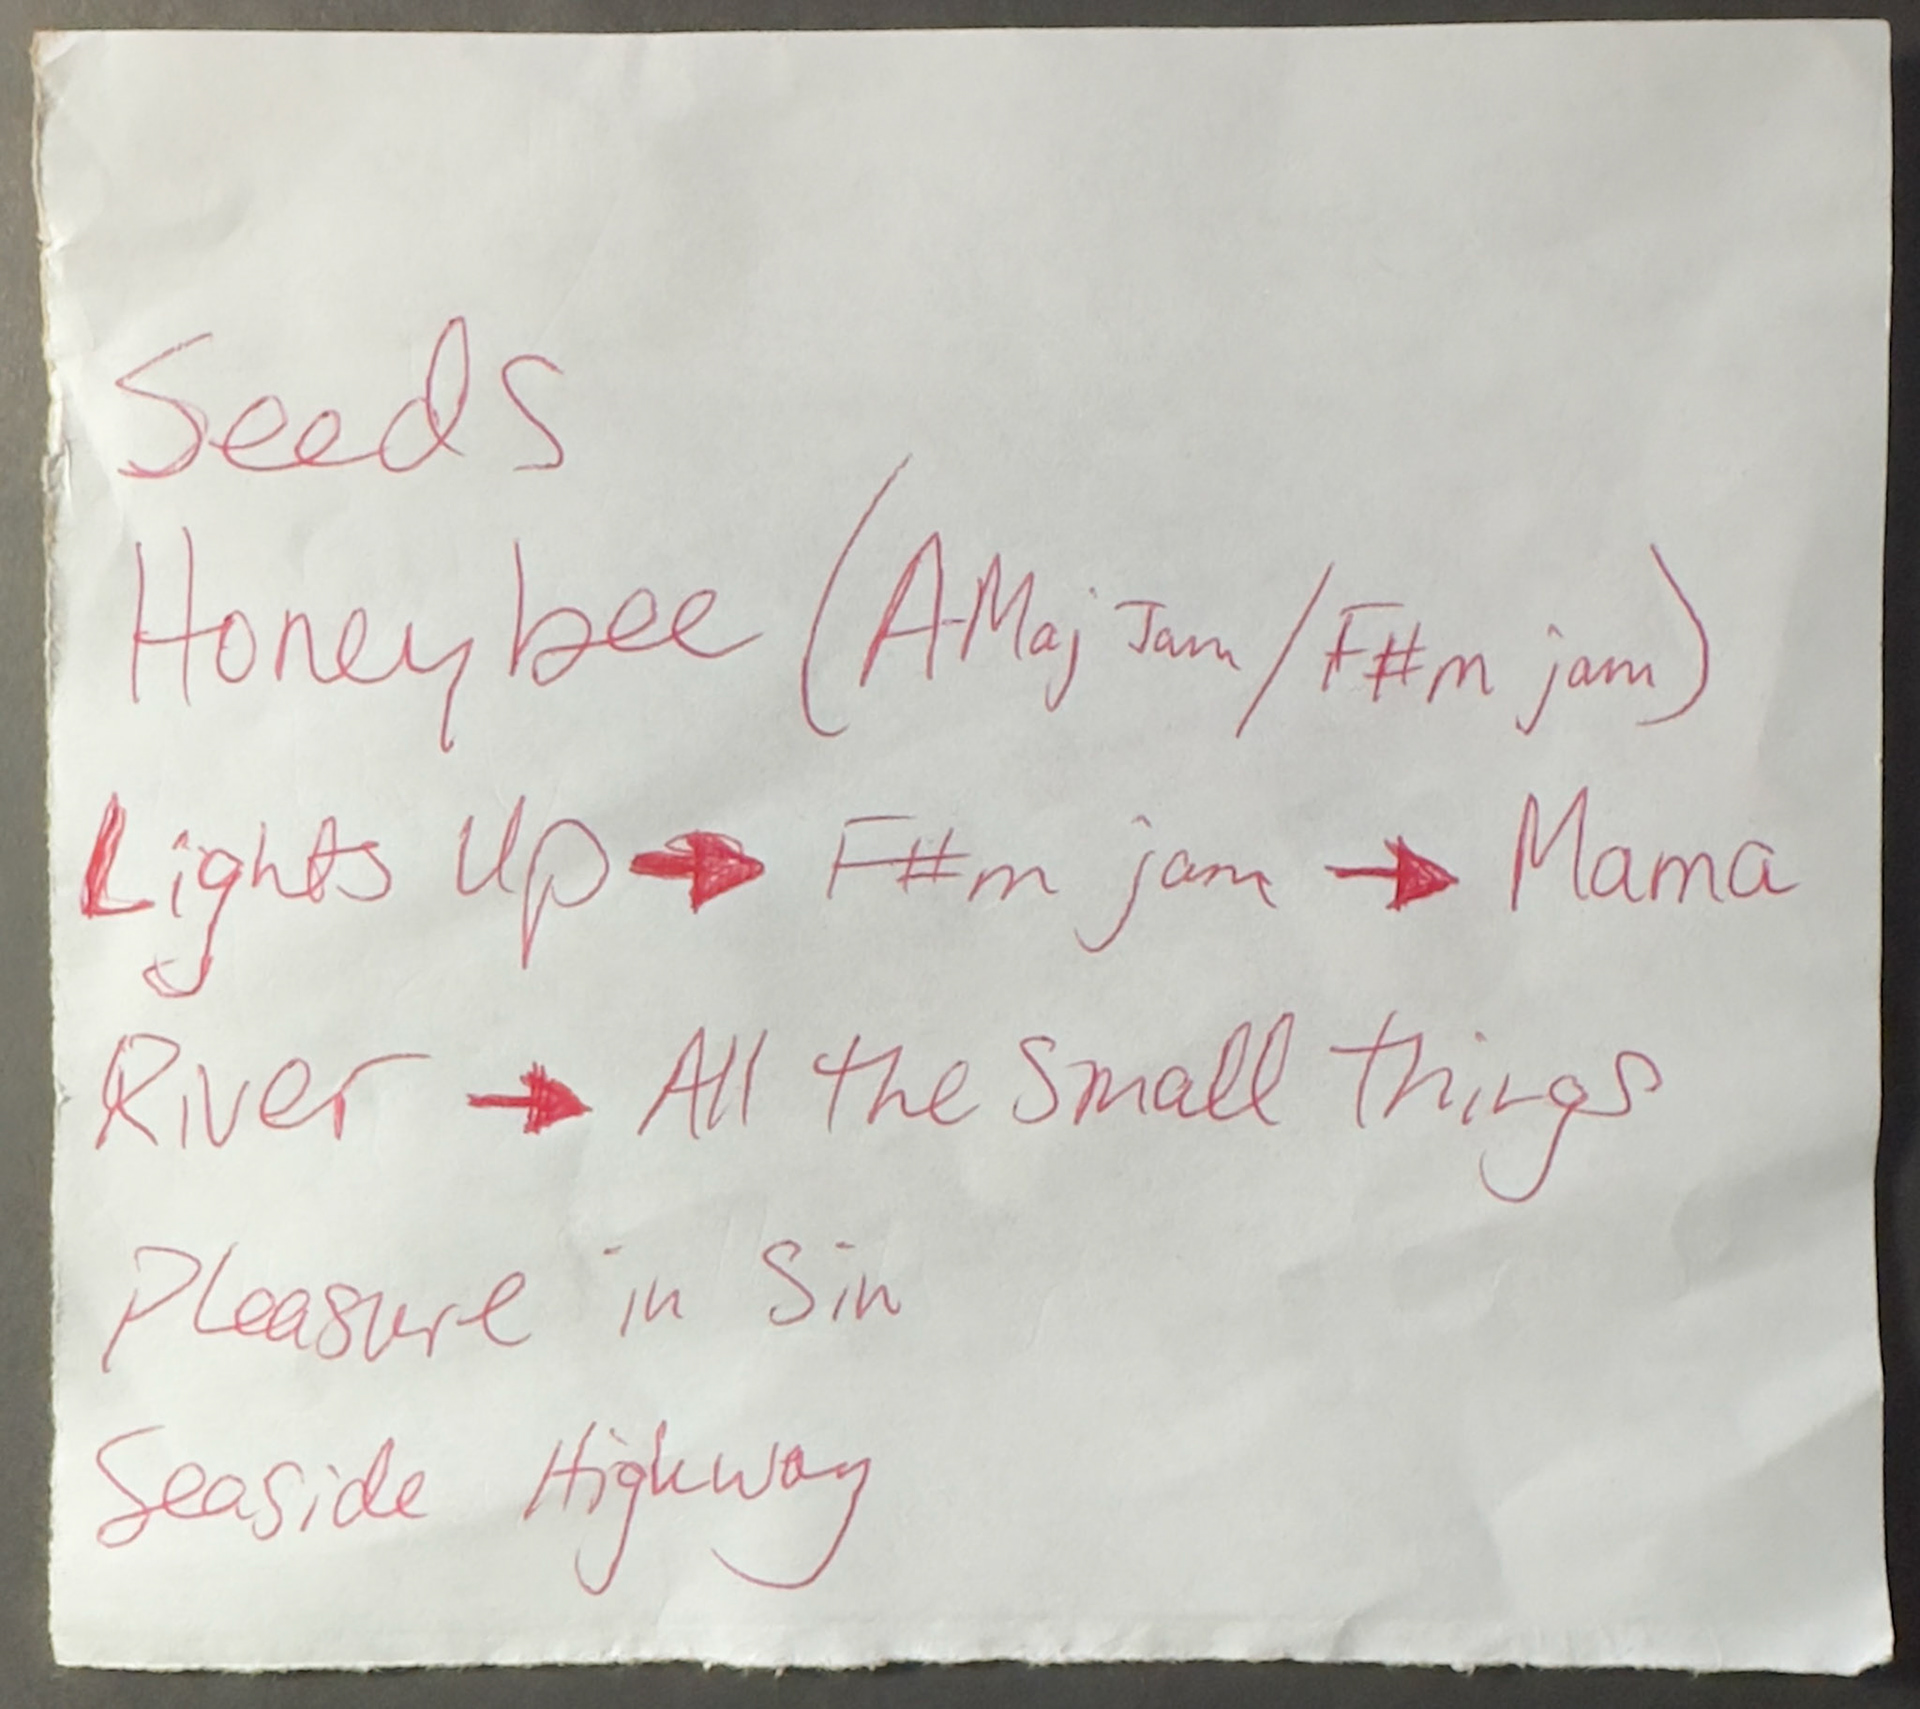 Seeds
Honeybee (A-Maj Jam/F#m jam)
Lights Up → F#m jam → Mama
River → All the small things
Pleasure in Sin
Seaside Highway